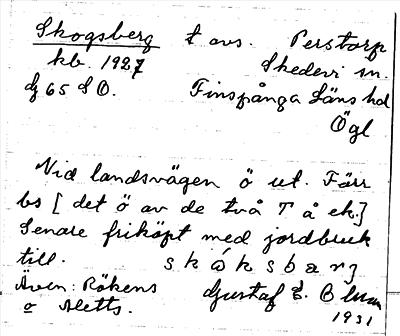 Skogsberg t avs. Perstorp
kb. 1927 Skedevi sn.
dj 65 S O. Finspånga Läns hd
Ögl
Vid landsvägen ö ut. Förr
bs [det ö av de två T å ek.]
Senare friköpt med jordbruk
till. skóksbærj
Även: Rökens Gustaf E.
o Metts. 1931